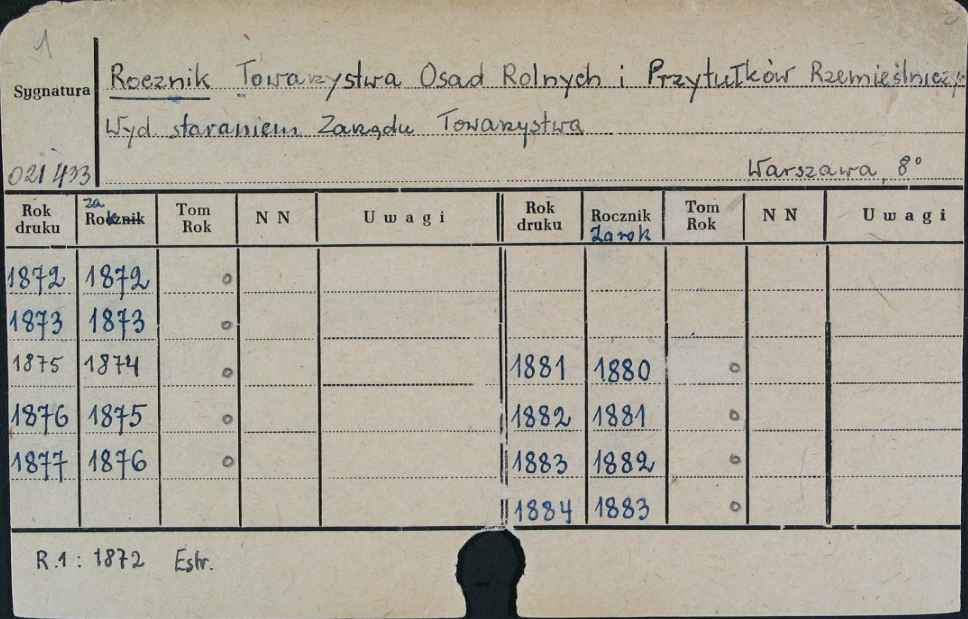 1
Sygnatura
Rocznik Towarzystwa Osad Rolnych i Przytułków Rzemieślniczy
Wyd staraniem Zarządu Towarzystwa
021433
Warszawa, 8°
Rok druku za Rocznik Tom Rok N N Uwagi Rok druku Rocznik Za rok Tom Rok N N Uwagi
1872 1872 o
1873 1873 o
1875 1874 o 1881 1880 o
1876 1875 o 1882 1881 o
1877 1876 o 1883 1882 o
1884 1883 o
R.1 : 1872 Estr.